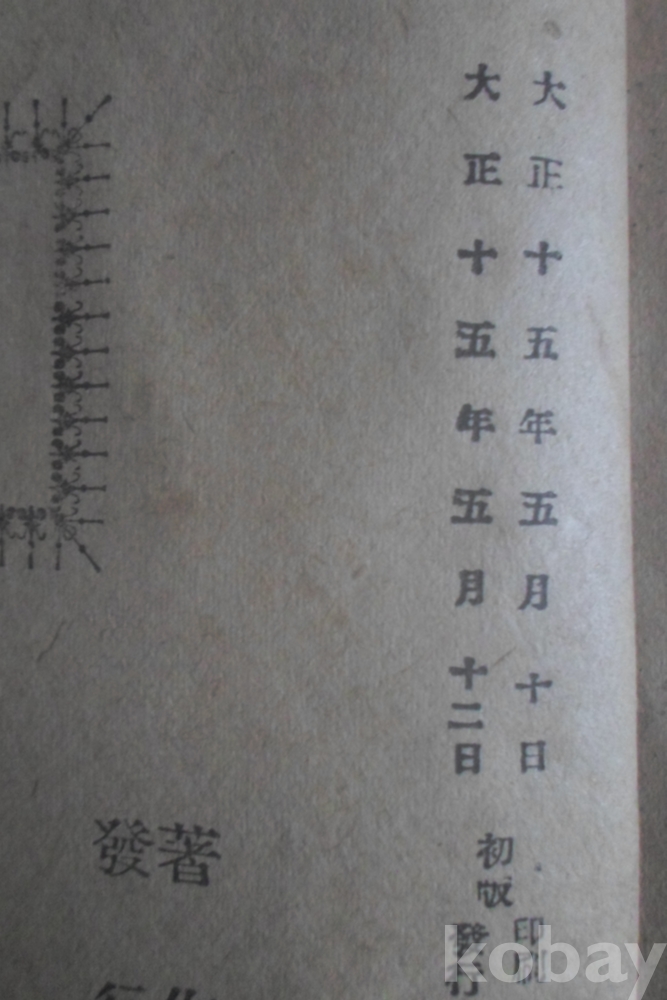 大正十五年五月十日 印刷
大正十五年五月十二日 初版發行
著
發
kobay